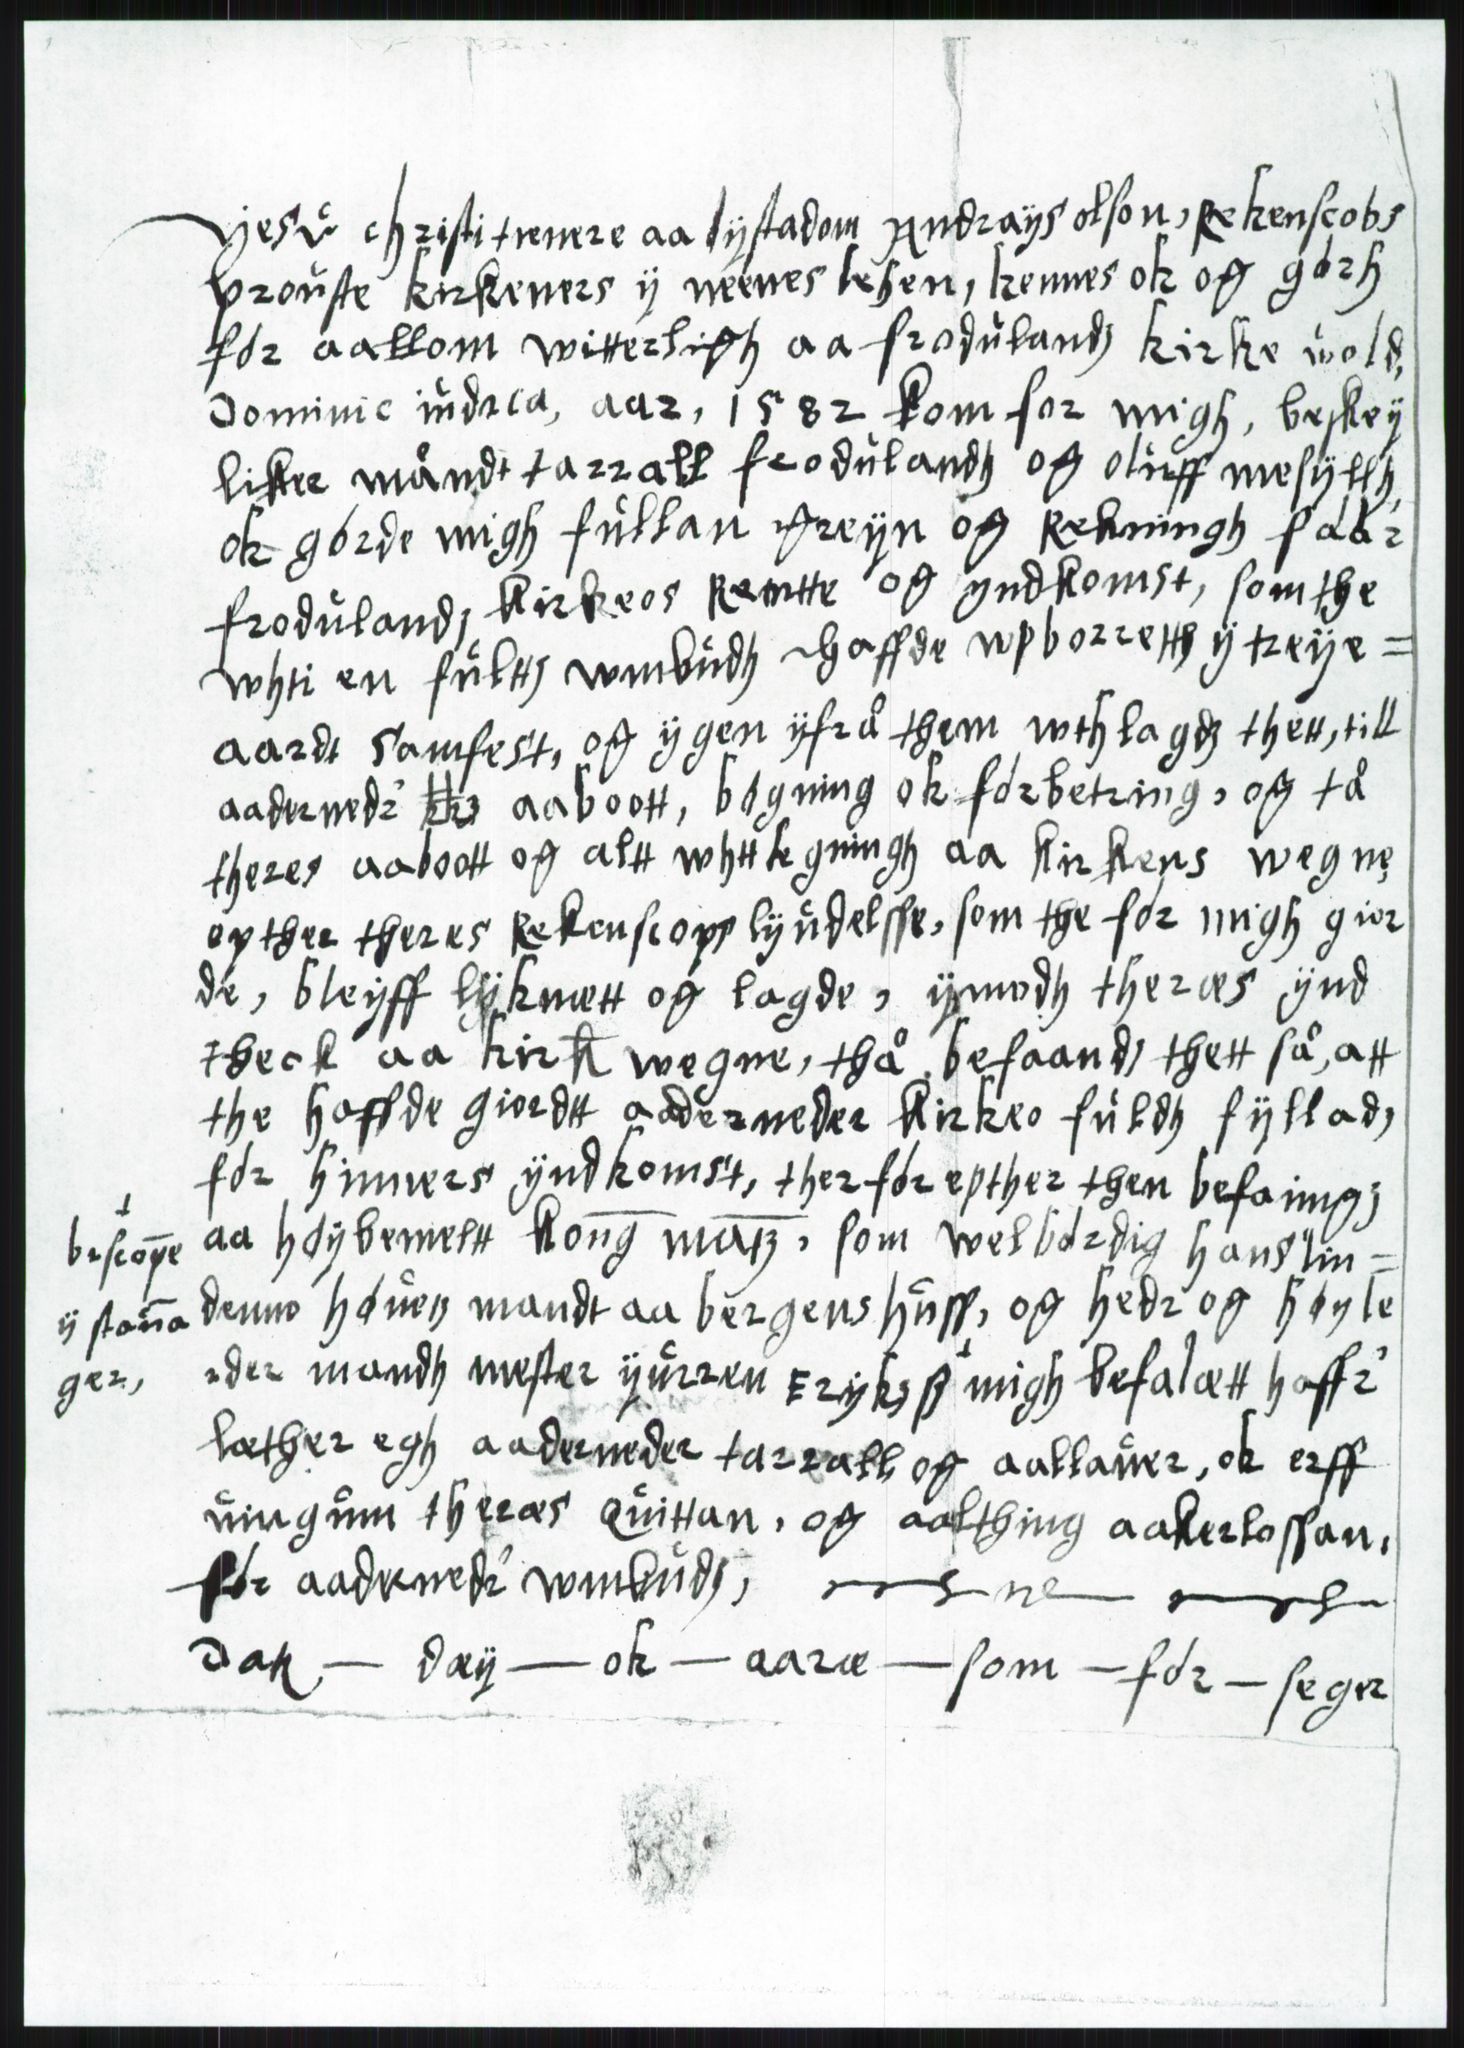 yesŭ christi tienere aa lystadom Andrays olson, Rekenscobs
proŭste kirkeners ÿ neenes lehen, kennes ok og görh
för aallom witterligh aa frodŭlandz kirke wold,
Dominic iudica, aar, 1582 kom for migh, beskey
liker måndt tarrall frodŭlandh og olŭff mesyllh,
ok görde migh fŭllan greÿn og Rekningh föör
frodŭlandz kirkeos Rentte og yndkomst, som the
whti en fŭltz wmbŭdh haffde wpborretth ÿ treÿe =
aardt samfest, og ygen yfrå them wthlagdz thett, till
aadernedr aaboott, bögning ok förbetring, og tå
theres aaboott og altt whttlegningh aa kirkens wegne
epther theres Rekenscops lyŭdelsse, som the för migh gior
de, bleÿff lÿknett og lagde, ÿmodh theræs ÿnd
theck aa kirk wegne, thå befaandz thett så, att
the haffde giordtt aaderneder kirkeo fŭldh fÿlladz
för hinners ÿndkomst, therför epther then befaingz
aa höybemeltt kong matz, som welbördig hans lin =
denno höŭetz mandt aa bergenshŭss, og hedr og höyle
rder mandh mester ÿŭrren Erykss migh befalætt haffr
bescope
ÿ staua
ger,
læther egh aaderneder tarrall og aallaŭer, ok erff
ŭingŭm theræs Qŭittan, og aalthing aakerlossan,
för aadernedr wmbŭdz,
Dak — day — ok — aaræ — som — för — seger